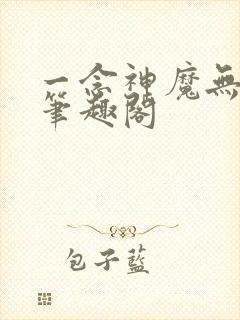 一念神魔無
筆趣閣
包子藍